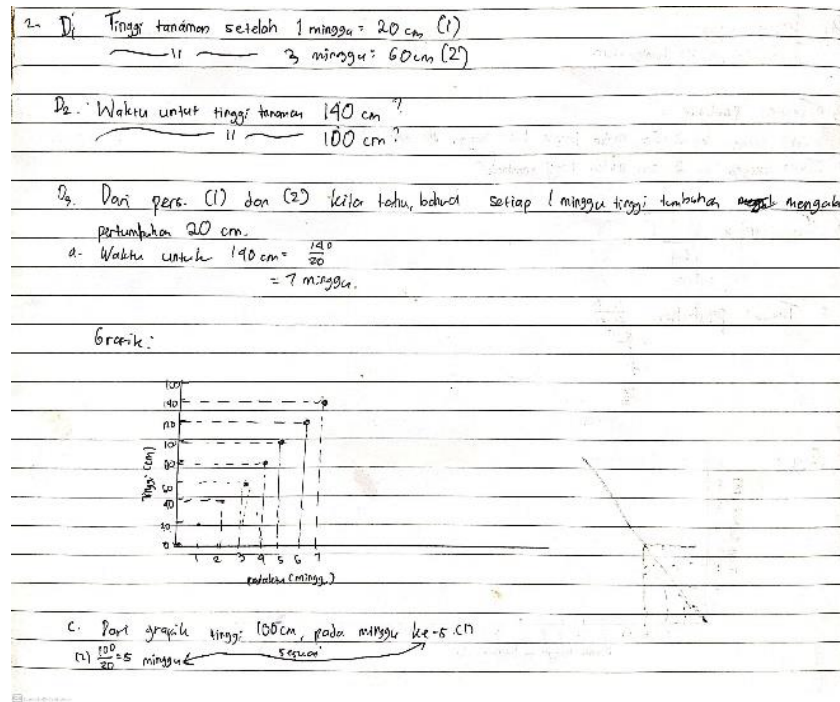 2. D1 Tinggi tanaman setelah 1 minggu = 20 cm (1)
— 11 — 3 minggu = 60 cm (2)
D2. Waktu untuk tinggi tanaman 140 cm ?
— 11 — 100 cm ?
D3. Dari pers. (1) dan (2) kita tahu, bahwa setiap 1 minggu tinggi tumbuhan mengala
pertumbuhan 20 cm.
a. Waktu untuk 140 cm = 140/20
= 7 minggu.
Grafik:
140
120
100
80
60
40
20
0
Tinggi (cm)
1 2 3 4 5 6 7
c. Dari grafik tinggi 100 cm, pada minggu ke-5 (1)
(2) 100/20 = 5 minggu
sesuai